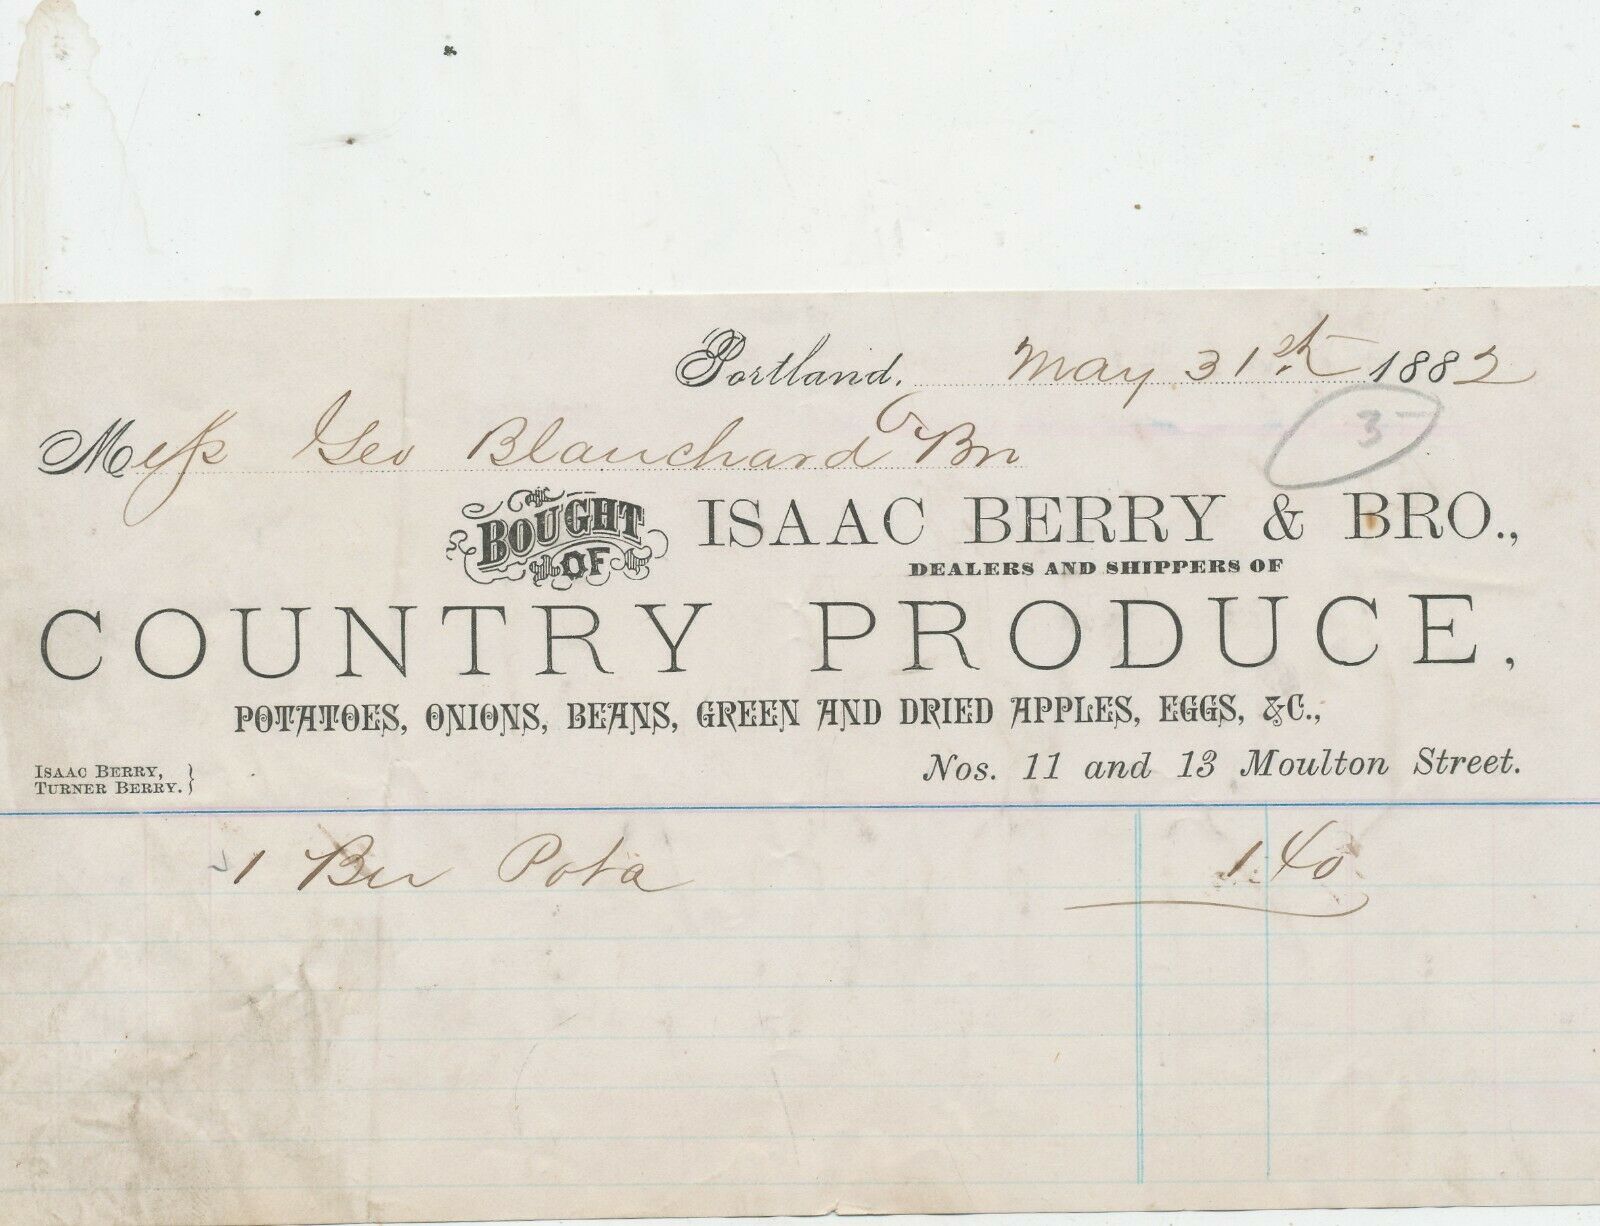 Portland, May 31st 1882
Mess Geo Blanchard & Bro
3-
BOUGHT OF ISAAC BERRY & BRO.,
DEALERS AND SHIPPERS OF
COUNTRY PRODUCE,
POTATOES, ONIONS, BEANS, GREEN AND DRIED APPLES, EGGS, &C.,
Nos. 11 and 13 Moulton Street.
ISAAC BERRY,
TURNER BERRY.}
1 Pota 1.40